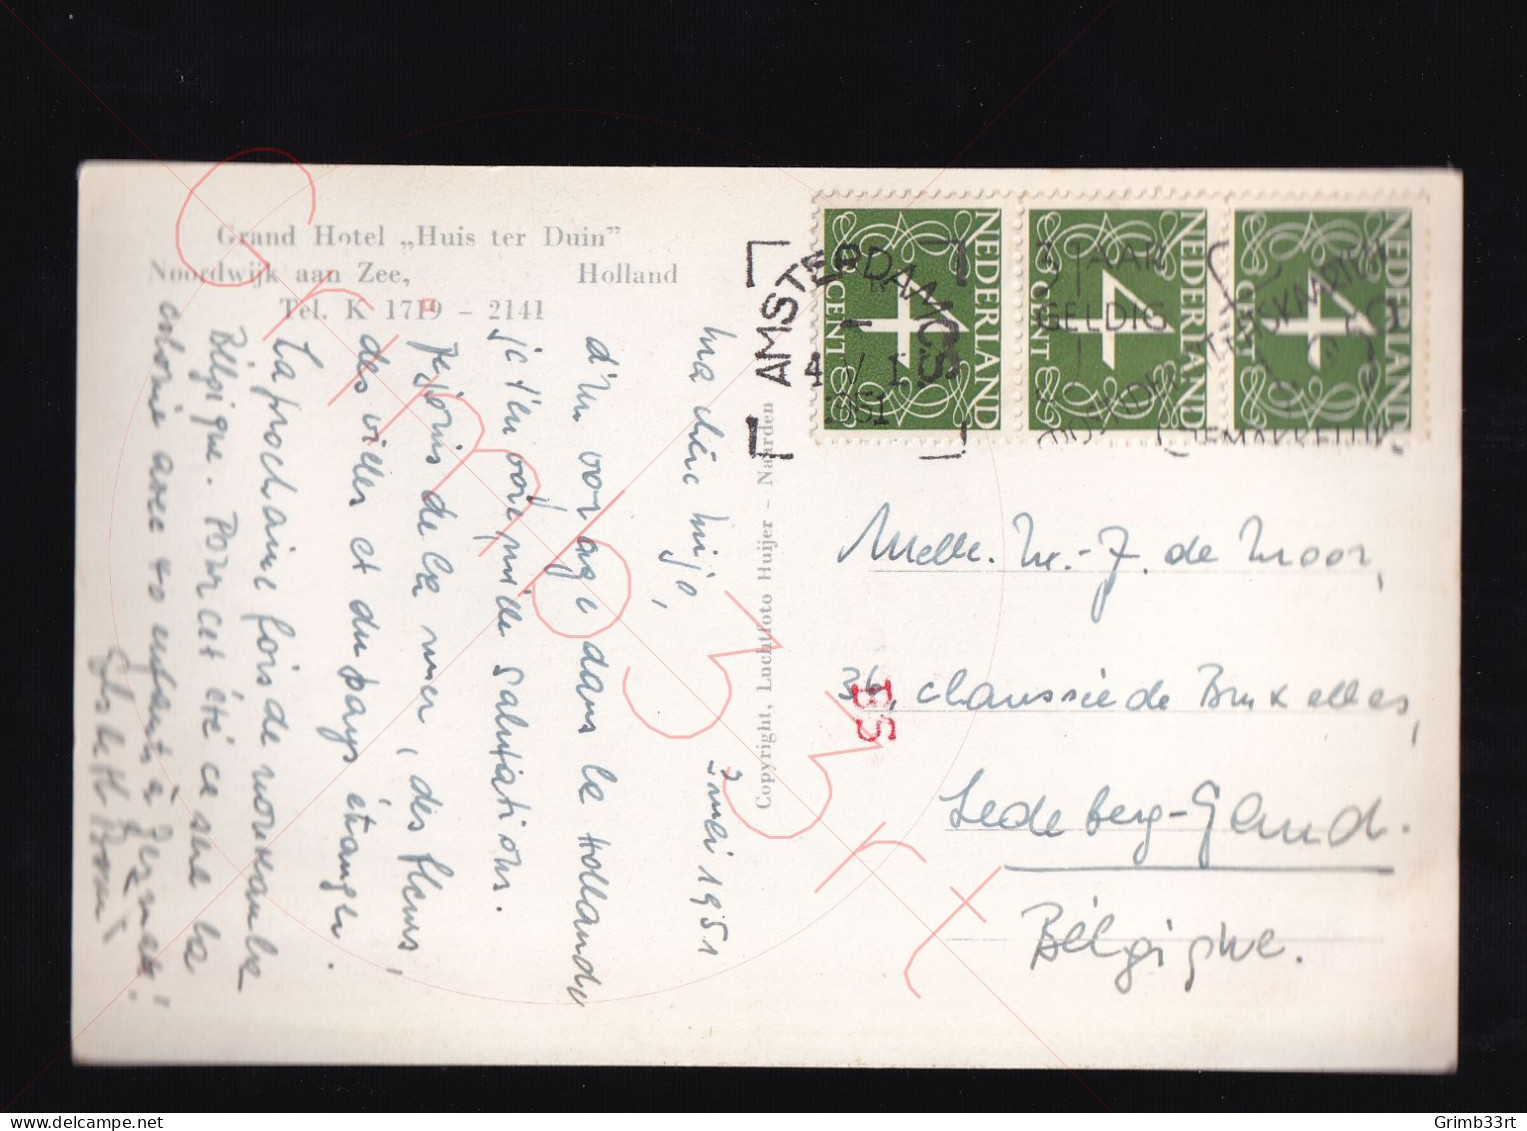 Grand Hotel „Huis ter Duin"
Noordwijk aan Zee, Holland
Tel. K 1719 - 2141
Copyright, Luchtfoto Huijer - Naarden
2 mei 1951
ma chère mijo,
d'un voyage dans la Hollande
je t'envoie mille salutations.
Je jouis de la mer, des fleurs,
des villes et du pays étranger.
La prochaine fois de nouveau la
Bélgique. Pour cet été ce sera la
colonie avec 40 enfants à
NEDERLAND
4
CENT
NEDERLAND
4
CENT
NEDERLAND
4
CENT
AMSTERDAM CS
4 V
1951
5 JAAR
GELDIG
GEMAKKELIJK
Melle. M.-J. de Moor,
36, chaussée de Bruxelles,
Ledeberg-Gand.
Bélgique.
BS
Grimb33rt
Grimb33rt